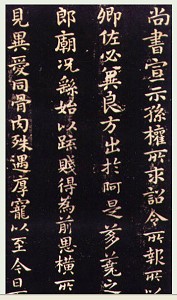 尚書宣示孫權所求詔令所報所以
卿佐必冀良方出於阿是芻蕘之
郎廟況繇始以疏賤得為前恩橫所
見異愛同骨肉殊遇厚寵以至今日